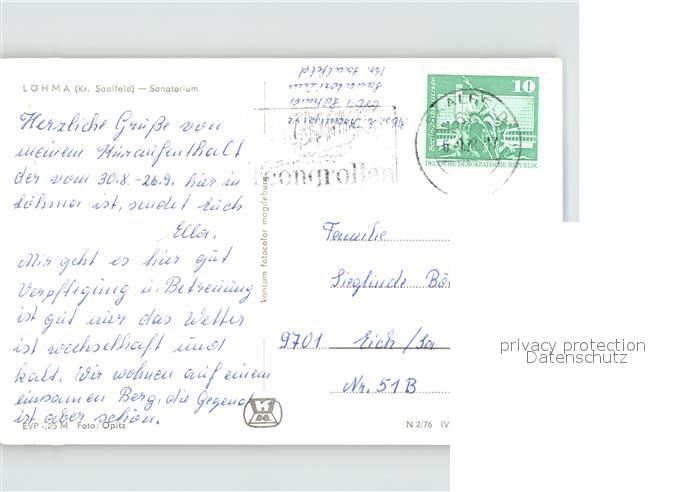 LÖHMA (Kr. Saalfeld) — Sanatorium
Herzliche Grüße von
meinem Kuraufenthalt
der vom 30.8.-26.9. hier in
Löhma ist, sendet Euch
Ella.
Mir geht es hier gut
Verpflegung u. Betreuung
ist gut nur das Wetter
ist wechselhaft und
kalt. Wir wohnen auf einem
einsamen Berg, die Gegend
ist aber schön.
EVP -,25 M Foto: Opitz
konsum fotocolor magdeburg
Sanatorium
Kr. Saalfeld
feengrotten
10
DEUTSCHE DEMOKRATISCHE REPUBLIK
Familie
Sieglinde
9701 Eich /Sa
Nr. 51 B
N 2/76 IV
privacy protection
Datenschutz